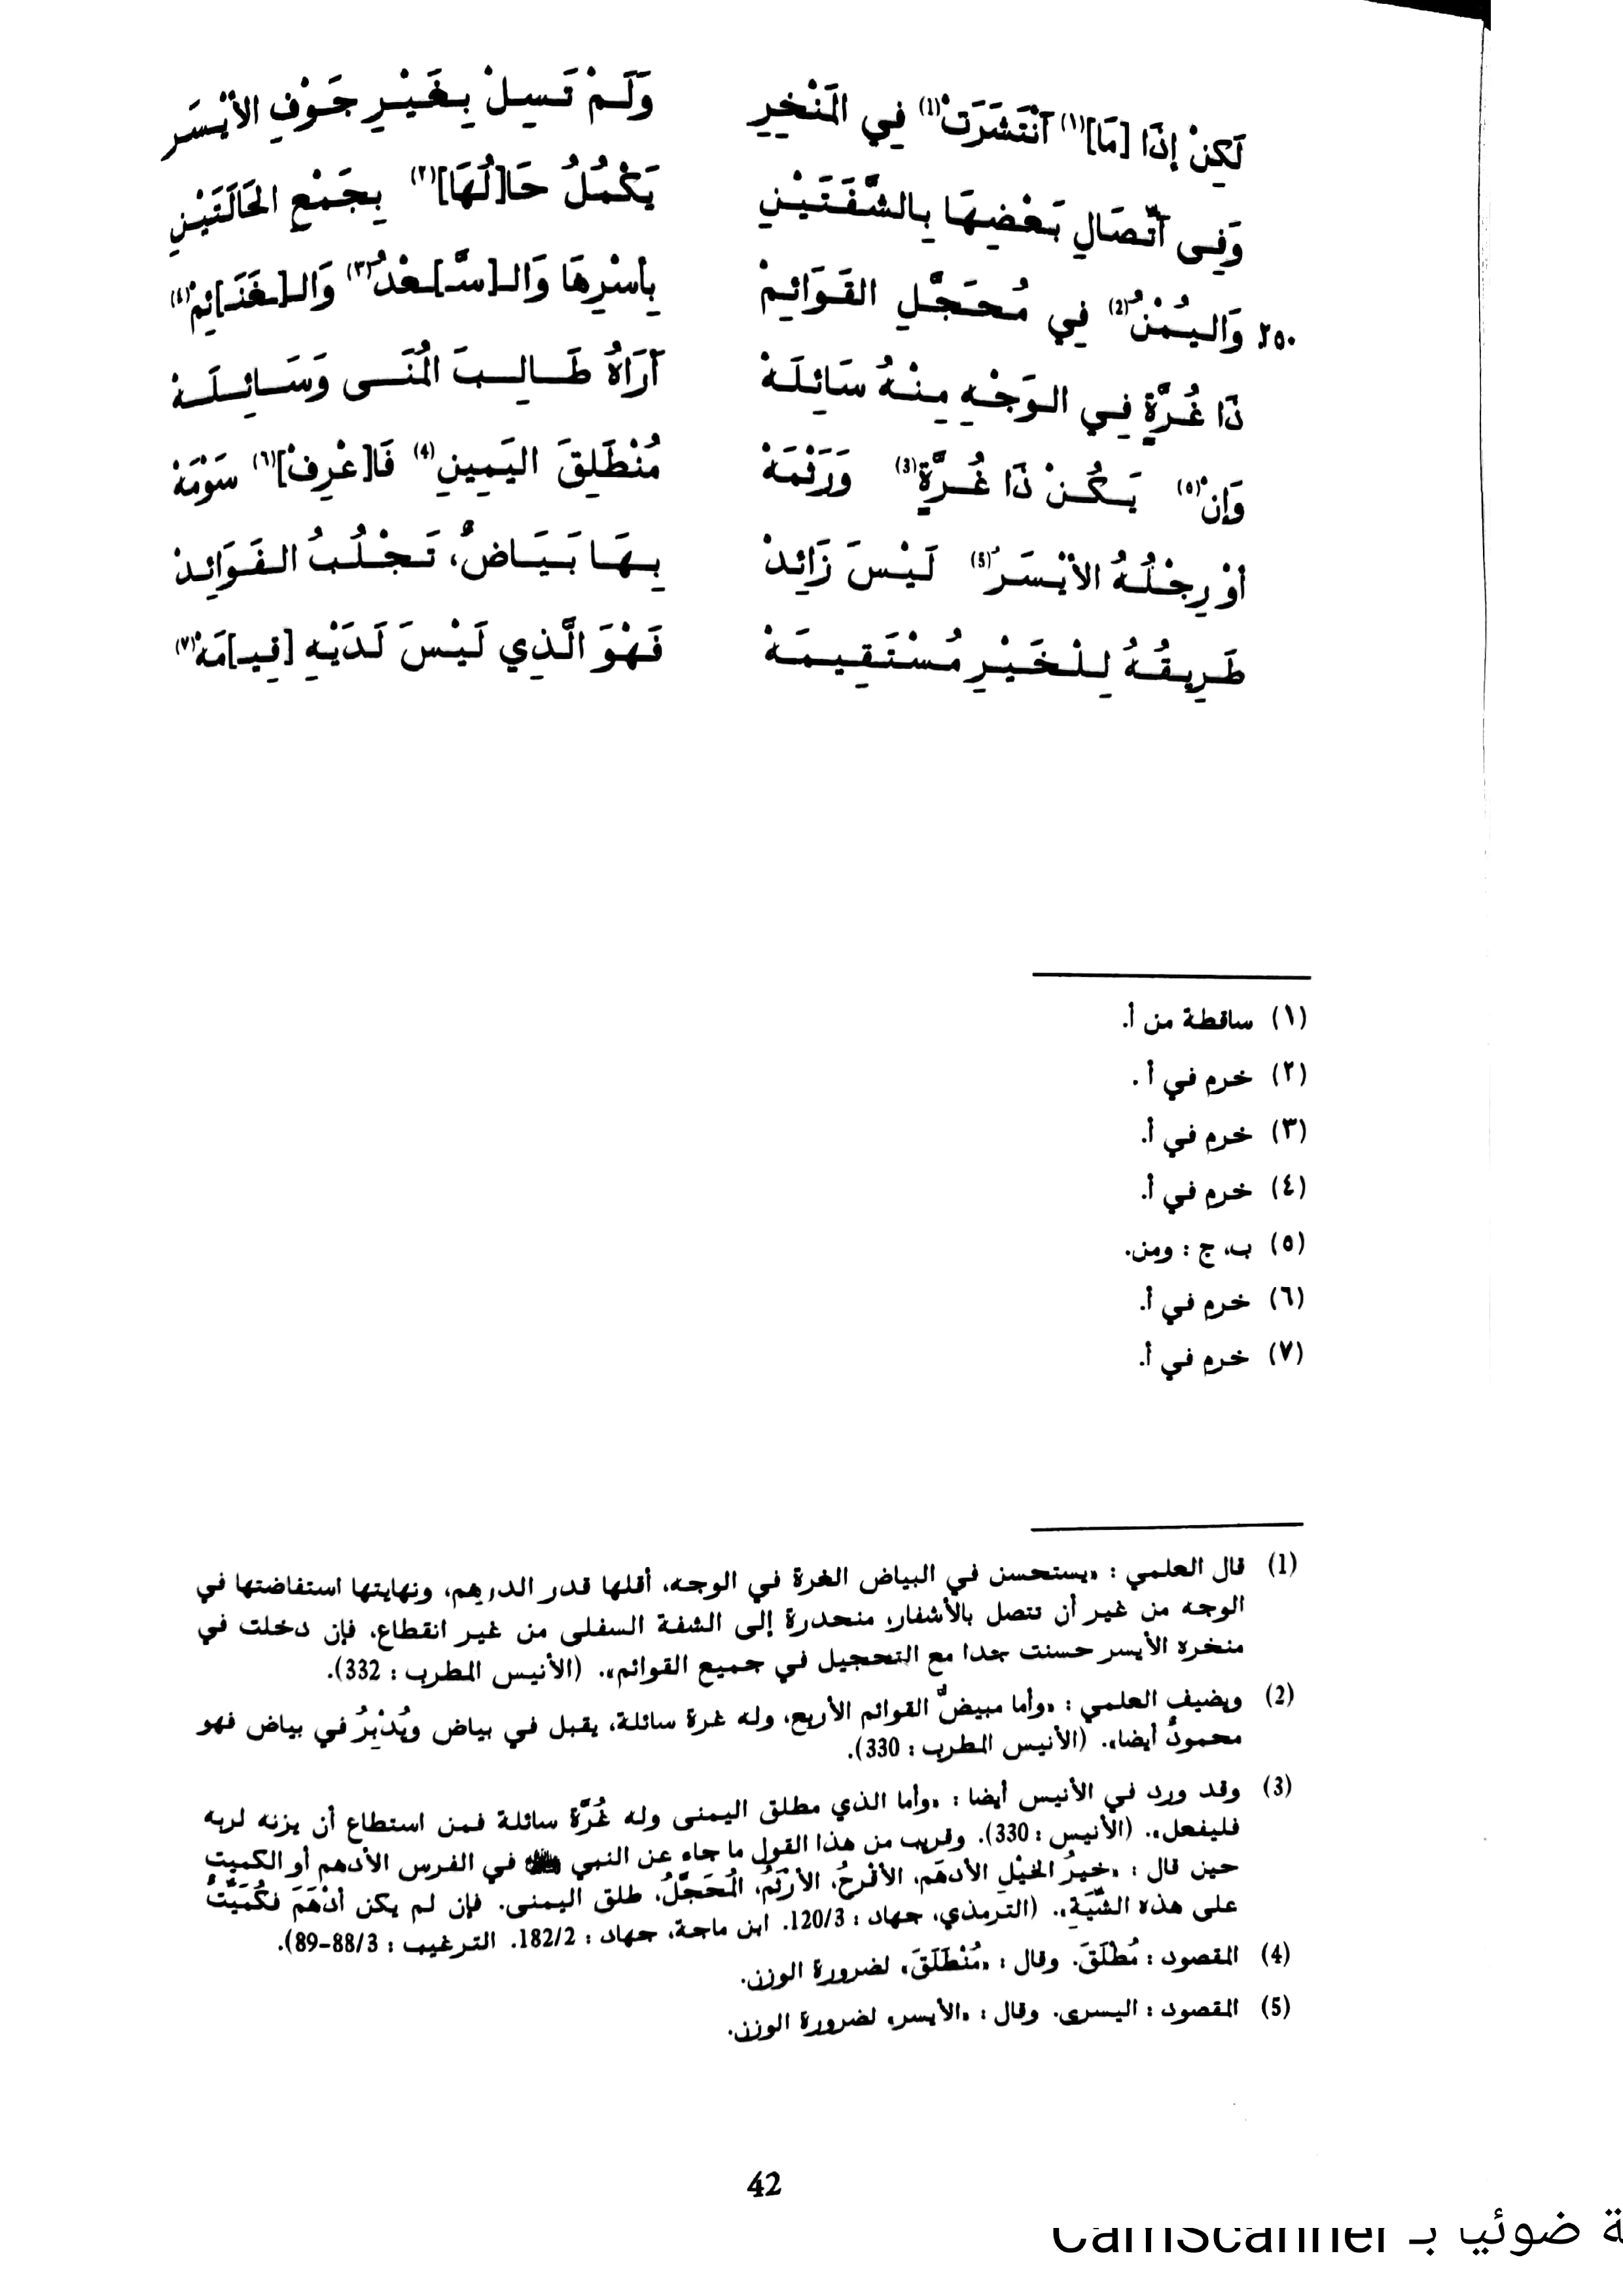 لَكِنْ إِذَا [مَا](١) آنْتَشَرَتْ(1) فِي المَنْخِرِ وَلَـمْ تَـسِـلْ بِـغَـيْـرِ جَـوْفِ الأيْـسَـرِ
وَفِـى آتِّـصَـالِ بَـعْـضِـهَـا بِـالشَّـفَـتَـيْـنِ يَـكْـمُـلُ حَـا[لُهَا](٢) بِـجَـمْـعِ الحَـالَـتَـيْـنِ
٢٥٠ وَالـيُـمْـنُ(2) فِي مُـحَـجَّـلِ القَـوَائِـمْ بِأسْرِهَا وَالـ[سَّـ]ـعْدُ(٣) وَالـ[غَنَـ]ـائِمْ(٤)
ذَا غُـرَّةٍ فِـي الـوَجْـهِ مِـنْـهُ سَائِـلَـهْ أَرَاهُ طَـالِـبَ المُنَـى وَسَـائِـلَـهْ
وَإِنْ(٥) يَـكُـنْ ذَا غُـرَّةٍ(3) وَرَثْمَهْ مُنْطَلِقَ اليَمِينِ(4) فَا[عْرِفْ](٦) سَوْمَهْ
أوْ رِجْـلُـهُ الأيْـسَـرُ(5) لَـيْـسَ زَائِـدْ بِـهَـا بَـيَـاضٌ، تَـجْـلُـبُ الـفَـوَائِـدْ
طَـرِيـقُـهُ لِـلْـخَـيْـرِ مُـسْـتَـقِـيـمَـهْ فَـهْـوَ الَّـذِي لَـيْـسَ لَـدَيْـهِ [قِـيـ]ـمَهْ(٧)
(١) ساقطة من أ.
(٢) خرم في أ.
(٣) خرم في أ.
(٤) خرم في أ.
(٥) ب، ج : ومن.
(٦) خرم في أ.
(٧) خرم في أ.
(1) قال العلمي : «يستحسن في البياض الغرة في الوجه، أقلها قدر الدرهم، ونهايتها استفاضتها في
الوجه من غير أن تتصل بالأشفار، منحدرة إلى الشفة السفلى من غير انقطاع، فإن دخلت في
منخره الأيسر حسنت جدا مع التحجيل في جميع القوائم». (الأنيس المطرب : 332).
(2) ويضيف العلمي : «وأما مبيضُّ القوائم الأربع، وله غرة سائلة، يقبل في بياض ويُدْبِرُ في بياض فهو
محمودٌ أيضا». (الأنيس المطرب : 330).
(3) وقد ورد في الأنيس أيضا : «وأما الذي مطلق اليمنى وله غُرَّة سائلة فـمن استطاع أن يزنه لربه
فليفعل». (الأنيس : 330). وقريب من هذا القول ما جاء عن النبي ﷺ في الفرس الأدهم أو الكميت
حين قال : «خيرُ الخيْلِ الأدهَم، الأقْرحُ، الأرْثَمُ، المُحَجَّلُ، طلق اليمنى. فإن لم يكن أدْهَمَ فكُمَيْتٌ
على هذه الشِّيَةِ». (الترمذي، جهاد : 120/3. ابن ماجة، جهاد : 182/2. الترغيب : 88/3–89).
(4) المقصود : مُطْلَقَ. وقال : «مُنْطَلَقَ» لضرورة الوزن.
(5) المقصود : اليسرى. وقال : «الأيسر» لضرورة الوزن.
42
ة ضوئيا بـ CamScanner